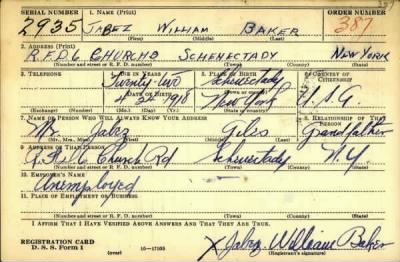 SERIAL NUMBER 1. NAME (Print) ORDER NUMBER
2935 JABEZ WILLIAM BAKER 387
(First) (Middle) (Last)
2. ADDRESS (Print)
R.F.D.6 CHURCHS SCHENECTADY NEW YORK
(Number and street or R. F. D. number) (Town) (County) (State)
3. TELEPHONE 4. AGE IN YEARS 5. PLACE OF BIRTH 6. COUNTRY OF CITIZENSHIP
Twenty-two Schenectady
DATE OF BIRTH
4 22 1918 New York U.S.A.
(Exchange) (Number) (Mo.) (Day) (Yr.) (State or country)
7. NAME OF PERSON WHO WILL ALWAYS KNOW YOUR ADDRESS 8. RELATIONSHIP OF THAT PERSON
Mr. Jabez Giles Grandfather
(Mr., Mrs., Miss) (First) (Middle) (Last)
9. ADDRESS OF THAT PERSON
R.F.D.6 Church Rd Schenectady N.Y.
(Number and street or R. F. D. number) (Town) (County) (State)
10. EMPLOYER'S NAME
Unemployed
11. PLACE OF EMPLOYMENT OR BUSINESS
(Number and street or R. F. D. number) (Town) (County) (State)
I AFFIRM THAT I HAVE VERIFIED ABOVE ANSWERS AND THAT THEY ARE TRUE.
REGISTRATION CARD
D. S. S. Form 1 (over) 16—17105 x Jabez William Baker
(Registrant's signature)